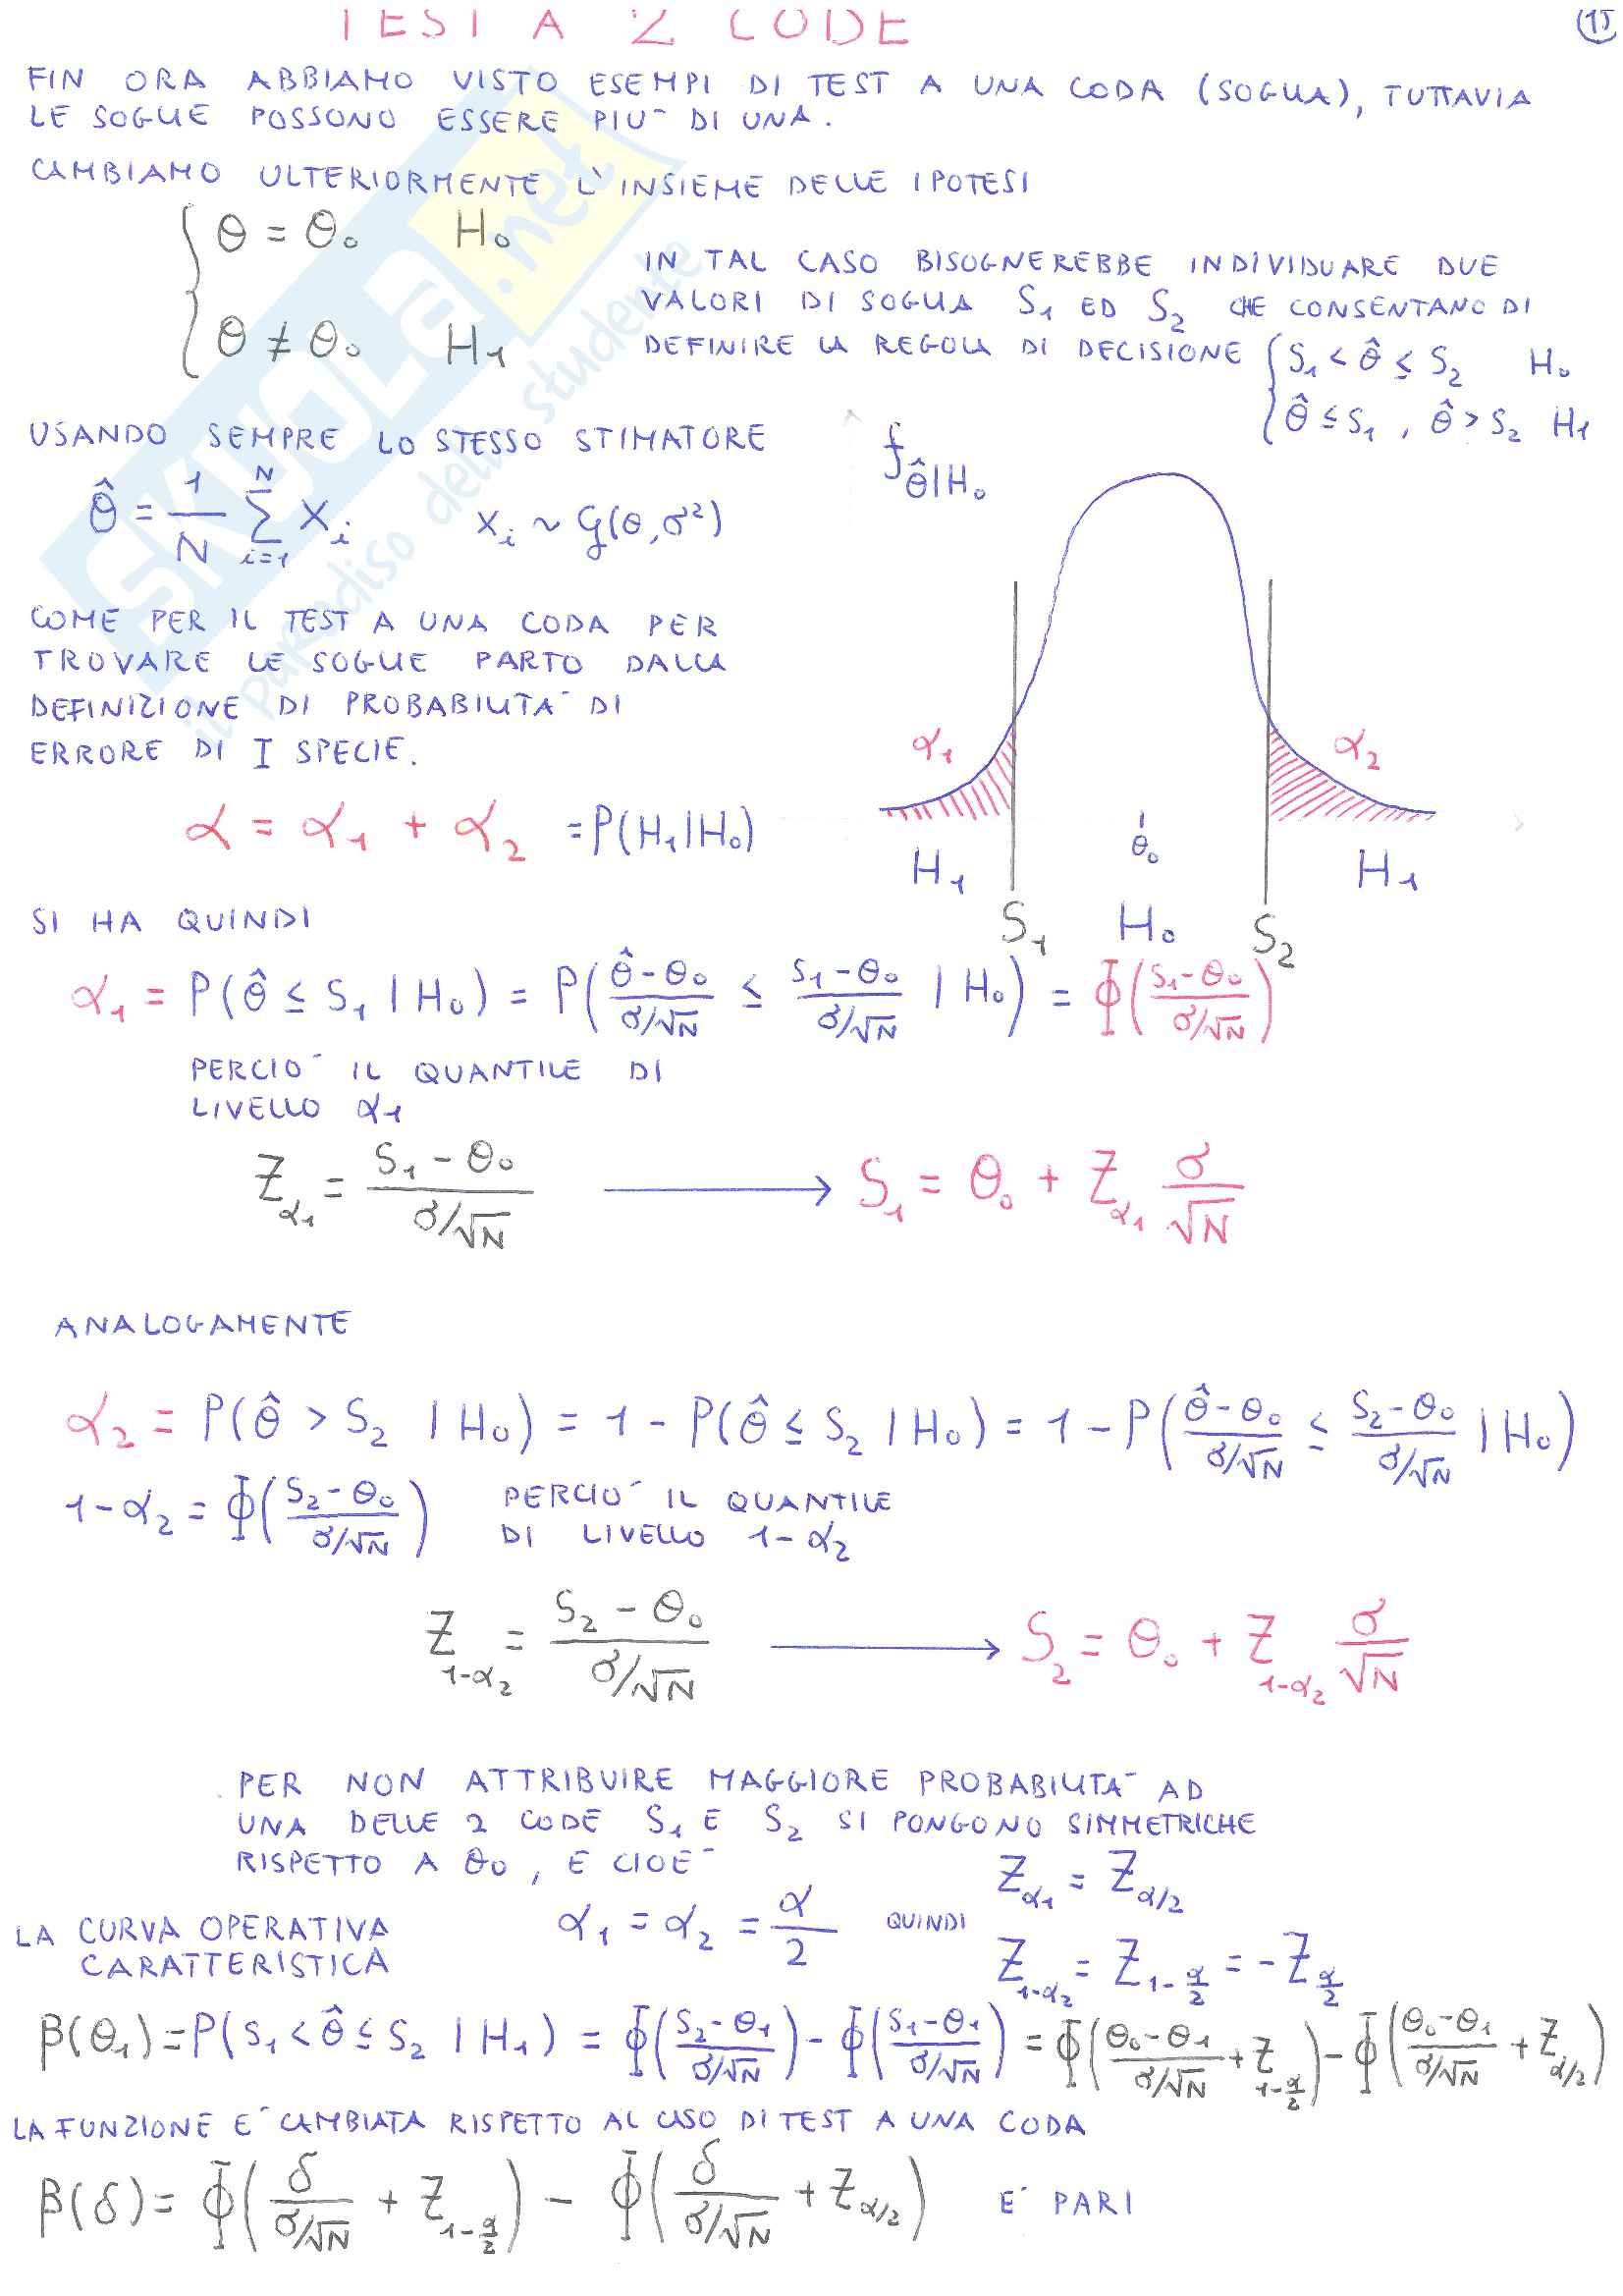 TEST A 2 CODE
(1)
FIN ORA ABBIAMO VISTO ESEMPI DI TEST A UNA CODA (SOGLIA), TUTTAVIA
LE SOGLIE POSSONO ESSERE PIU' DI UNA.
CAMBIAMO ULTERIORMENTE L'INSIEME DELLE IPOTESI
θ = θ₀ H₀
θ ≠ θ₀ H₁
IN TAL CASO BISOGNEREBBE INDIVIDUARE DUE
VALORI DI SOGLIA S₁ ED S₂ CHE CONSENTANO DI
DEFINIRE LA REGOLA DI DECISIONE { S₁ < θ̂ ≤ S₂ H₀
θ̂ ≤ S₁ , θ̂ > S₂ H₁
USANDO SEMPRE LO STESSO STIMATORE
θ̂ = 1/N ∑_{i=1}^{N} X_i X_i ~ G(θ, σ²)
COME PER IL TEST A UNA CODA PER
TROVARE LE SOGLIE PARTO DALLA
DEFINIZIONE DI PROBABILITA' DI
ERRORE DI I SPECIE.
α = α₁ + α₂ = P(H₁|H₀)
f_{θ̂|H₀}
α₁ α₂
θ₀
H₁ H₁
S₁ H₀ S₂
SI HA QUINDI
α₁ = P(θ̂ ≤ S₁ | H₀) = P((θ̂-θ₀)/(σ/√N) ≤ (S₁-θ₀)/(σ/√N) | H₀) = Φ((S₁-θ₀)/(σ/√N))
PERCIO' IL QUANTILE DI
LIVELLO α₁
Z_{α₁} = (S₁ - θ₀)/(σ/√N) → S₁ = θ₀ + Z_{α₁} σ/√N
ANALOGAMENTE
α₂ = P(θ̂ > S₂ | H₀) = 1 - P(θ̂ ≤ S₂ | H₀) = 1 - P((θ̂-θ₀)/(σ/√N) ≤ (S₂-θ₀)/(σ/√N) | H₀)
1-α₂ = Φ((S₂-θ₀)/(σ/√N)) PERCIO' IL QUANTILE
DI LIVELLO 1-α₂
Z_{1-α₂} = (S₂ - θ₀)/(σ/√N) → S₂ = θ₀ + Z_{1-α₂} σ/√N
PER NON ATTRIBUIRE MAGGIORE PROBABILITA' AD
UNA DELLE 2 CODE S₁ E S₂ SI PONGONO SIMMETRICHE
RISPETTO A θ₀, E CIOE'
α₁ = α₂ = α/2 QUINDI
Z_{α₁} = Z_{α/2}
Z_{1-α₂} = Z_{1-α/2} = -Z_{α/2}
LA CURVA OPERATIVA
CARATTERISTICA
β(θ₁) = P(S₁ < θ̂ ≤ S₂ | H₁) = Φ((S₂-θ₁)/(σ/√N)) - Φ((S₁-θ₁)/(σ/√N)) = Φ((θ₀-θ₁)/(σ/√N) + Z_{1-α/2}) - Φ((θ₀-θ₁)/(σ/√N) + Z_{α/2})
LA FUNZIONE E' CAMBIATA RISPETTO AL CASO DI TEST A UNA CODA
β(δ) = Φ(δ/(σ/√N) + Z_{1-α/2}) - Φ(δ/(σ/√N) + Z_{α/2}) E' PARI
SKUOLA.net
il paradiso dello studente